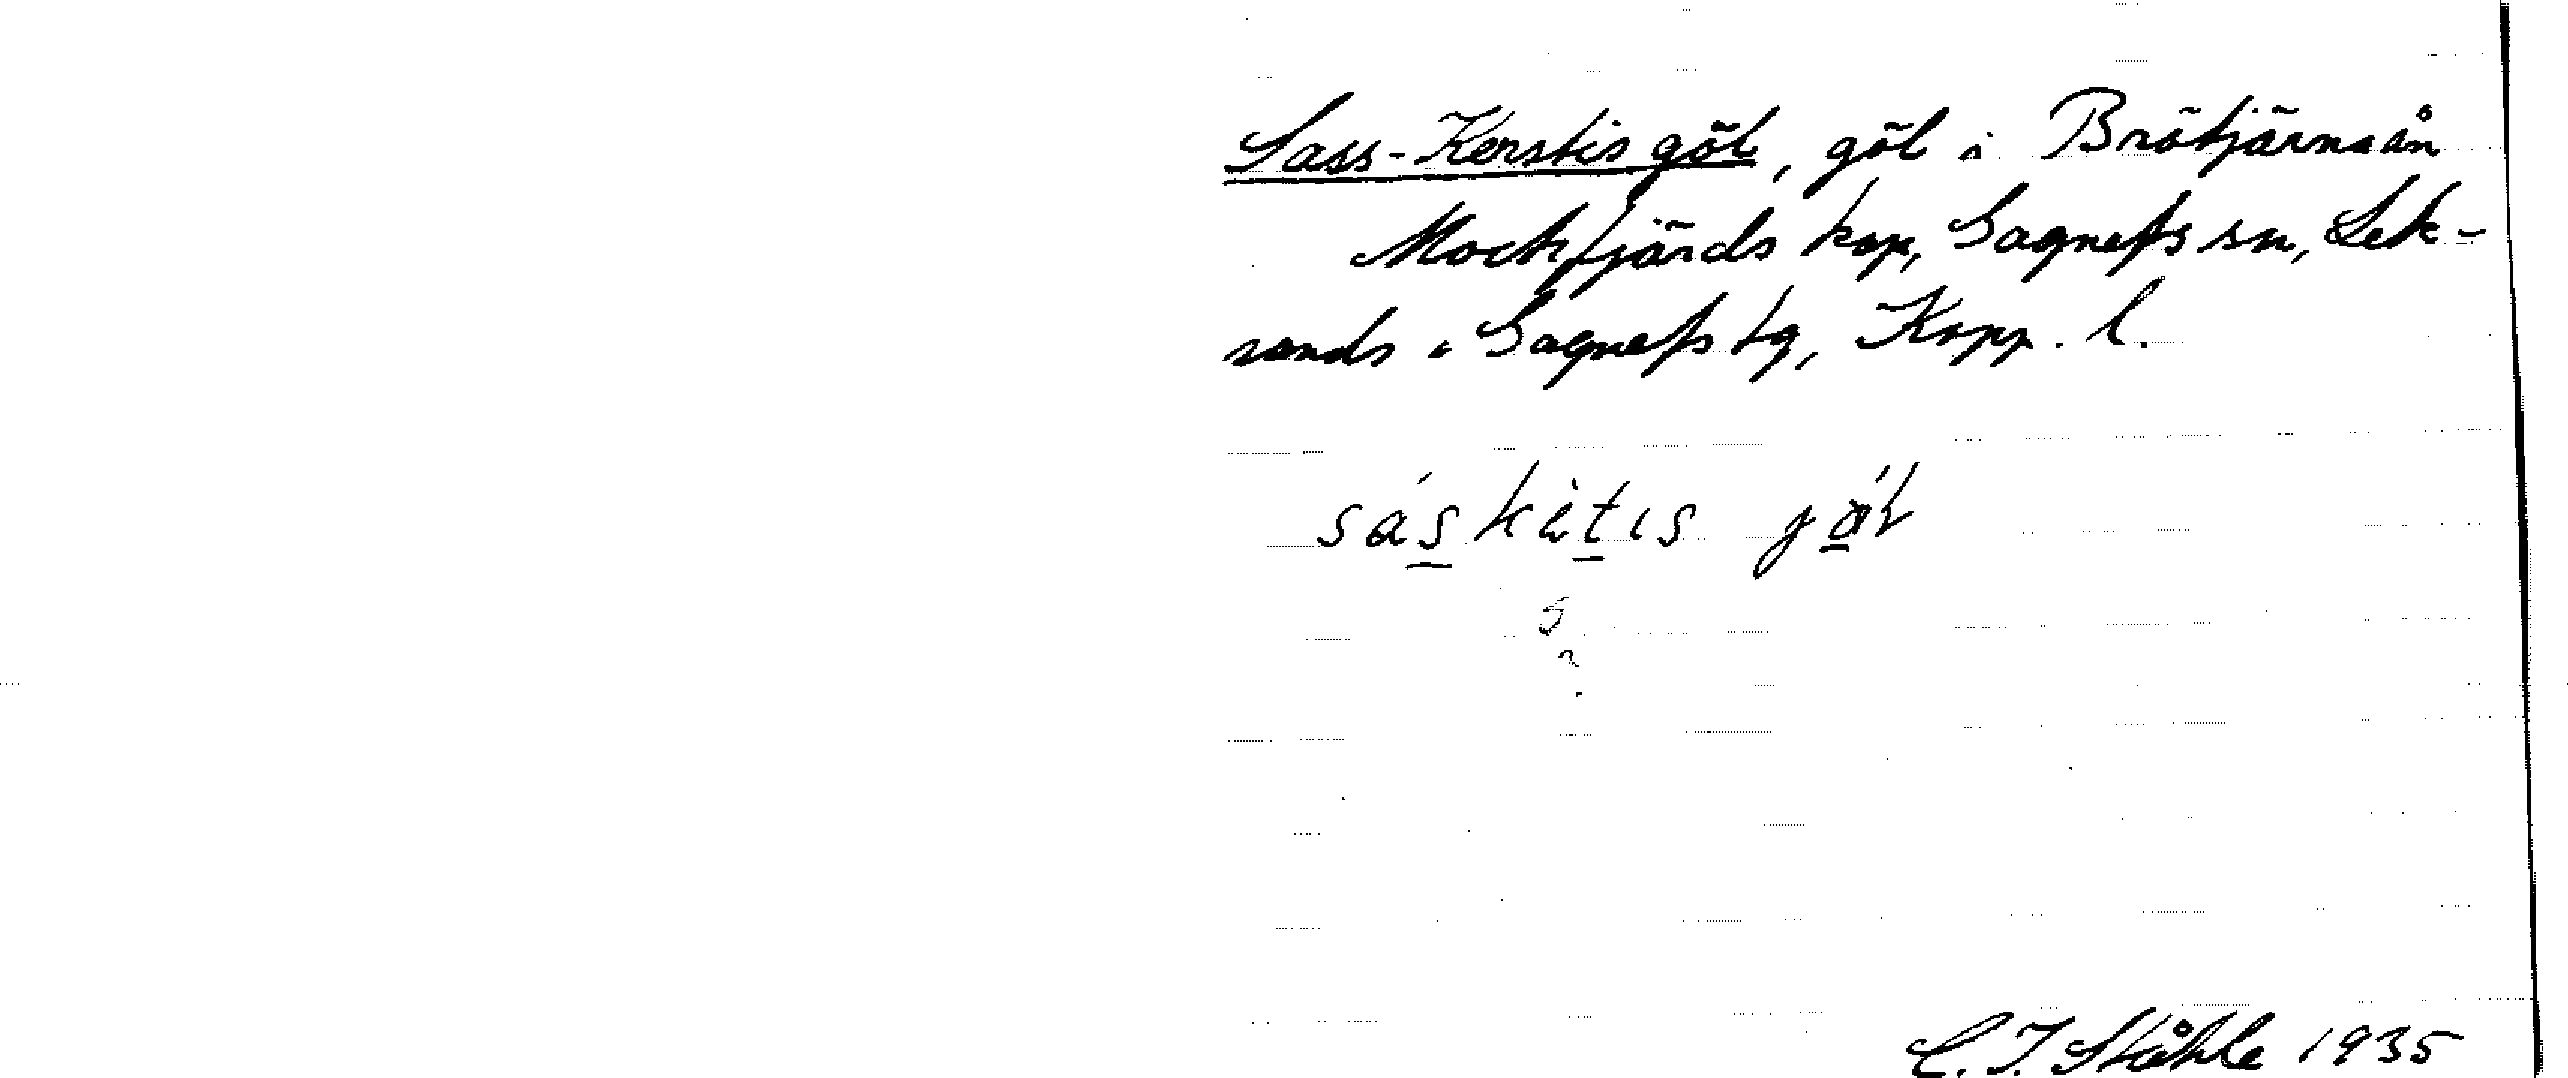 Sass-Kerstis göl, göl i Brötjärnaån
Mockfjärds kap, Gagnefs sn, Lek-
sands o Gagnefs tg, Kopp. l.
sás kètis jöl
s
?
C. I. Ståhle 1935